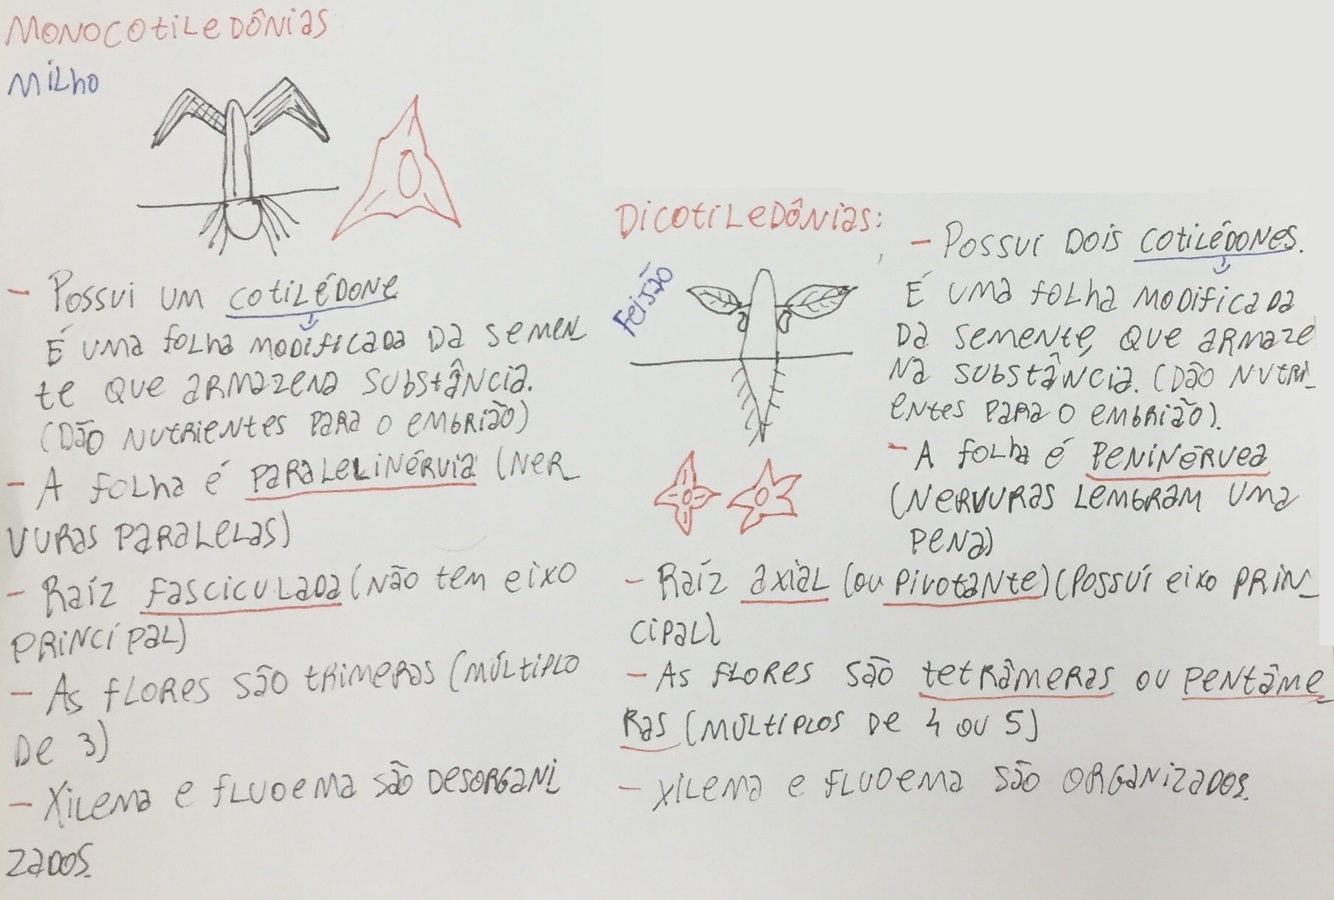 MONOCOTILEDÔNIAS
MILHO
- POSSUI UM COTILÉDONE
É UMA FOLHA MODIFICADA DA SEMEN
TE QUE ARMAZENA SUBSTÂNCIA.
(DÃO NUTRIENTES PARA O EMBRIÃO)
- A FOLHA É PARALELINÉRVIA (NER
VURAS PARALELAS)
- RAÍZ FASCICULADA (NÃO TEM EIXO
PRINCIPAL)
- AS FLORES SÃO TRIMERAS (MÚLTIPLO
DE 3)
- XILEMA E FLUOEMA SÃO DESORGANI
ZADOS.
DICOTILEDÔNIAS:
FEIJÃO
- POSSUI DOIS COTILÉDONES.
É UMA FOLHA MODIFICADA
DA SEMENTE, QUE ARMAZE
NA SUBSTÂNCIA. (DÃO NUTRI_
ENTES PARA O EMBRIÃO).
- A FOLHA É PENINÉRVEA
(NERVURAS LEMBRAM UMA
PENA)
- RAÍZ AXIAL (OU PIVOTANTE) (POSSUÍ EIXO PRIN_
CIPAL)
- AS FLORES SÃO TETRÂMERAS OU PENTÂME
RAS (MÚLTIPLOS DE 4 OU 5)
- XILEMA E FLUOEMA SÃO ORGANIZADOS.